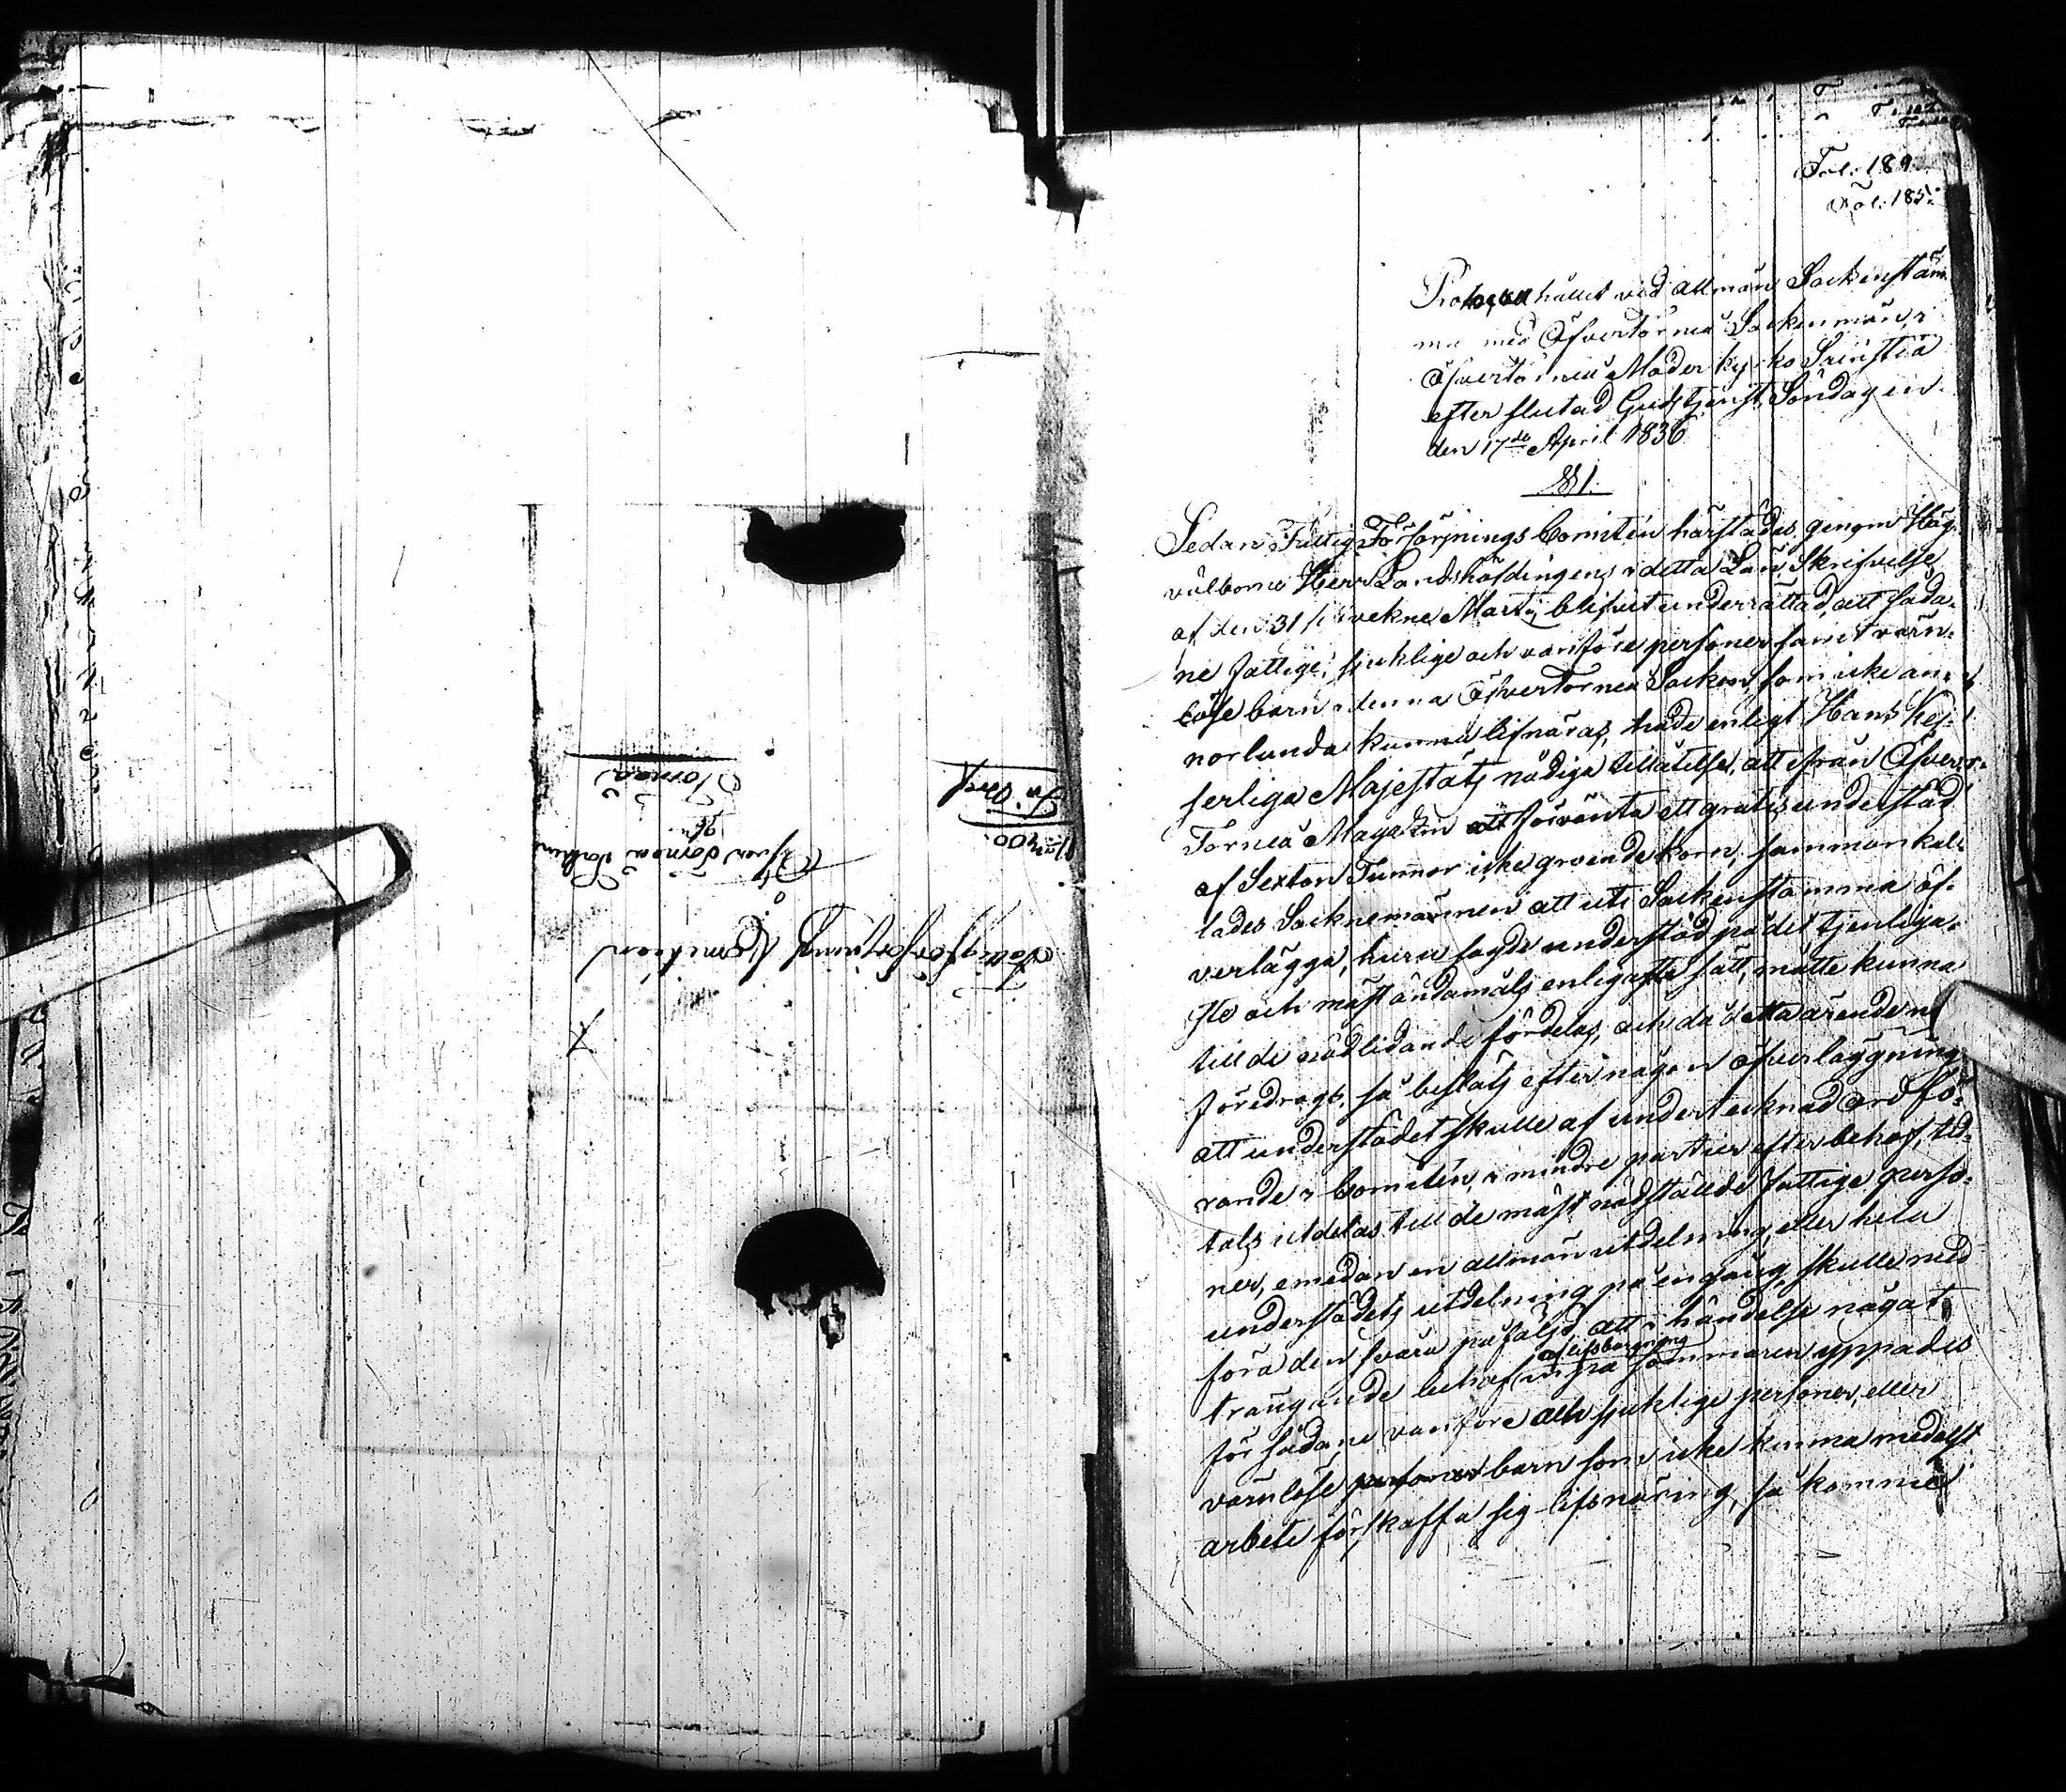 Fattigförsörjnings Comiteen
i
Öfver Torneå Socken
Torneå
Fr: Off:
N:o 300.
Fol. 189.
Fol. 185.
Protocoll hållit vid allmän Sockenstäm-
ma med Öfvertorneå Sockenmän, i
Öfvertorneå Moder kyrko Sacristia
efter slutad Gudstjenst, Söndagen
den 17de April 1836
§ 1.
Sedan Fattig Försörjnings Comitéen härstädes genom Hög-
välborne Herr Landshöfdingens i detta Län Skrifvelse
af den 31 sistvekne Martii, blifvit underrättad, att såda-
ne fattige, sjuklige och vanföre personer samt värn-
löse barn i denna Öfvertorneå Socken, som icke an-
norlunda kunna lifnäras, hade enligt Hans Kej-
serliga Majestäts nådiga tillåtelse, att ifrån Öfver-
Torneå Magazin att förvänta ett gratis understöd
af Sexton Tunnor icke groende korn, sammankal-
lades Socknemännen att uti Sockenstämma öf-
verlägga, huru sagde understöd på det tjenliga-
ste och mäst ändamåls enligaste sätt, måtte kunna
till de nödlidande fördelas, och då detta ärende nu
föredrogs, så beslöts efter någon öfverläggning
att understödet skulle af undertecknad ordfö-
rande i Comitéen, i mindre partier efter behof, tid-
tals utdelas till de mäst nödstälde fattige perso-
ner, emedan en allmän utdelning, eller hela
understödets utdelning på en gång, skulle med
föra den svåra påföljd, att i händelse något
trängande behof af lifsbergning inpå sommaren yppades
för sådane vanföre och sjuklige personer, eller
värnlöse personer barn som icke kunna medelst
arbete förskaffa sig lifsnäring, så komme